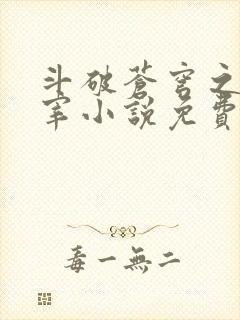 斗破蒼穹之
宰小說免費
毒一無二